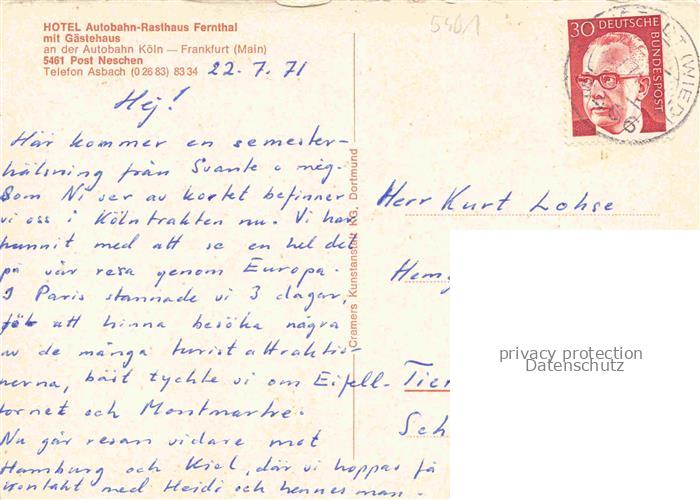 HOTEL Autobahn-Rasthaus Fernthal
mit Gästehaus
an der Autobahn Köln — Frankfurt (Main)
5461 Post Neschen
Telefon Asbach (0 26 83) 83 34
22.7.71
Hej!
Här kommer en semester-
hälsning från Svante o mig.
Som Ni ser av kortet befinner
vi oss i Kölntrakten nu. Vi har
hunnit med att se en hel del
på vår resa genom Europa.
I Paris stannade vi 3 dagar,
för att hinna besöka några
av de många turistattraktio-
nerna, bäst tyckte vi om Eifell-
tornet och Montmartre.
Nu går resan vidare mot
Hamburg och Kiel, där vi hoppas få
kontakt med Heidi och hennes man.
Cramers Kunstanstalt KG, Dortmund
5461
30 DEUTSCHE
BUNDESPOST
(WIED)
Herr Kurt Lohse
Hem
Tier
Sch
privacy protection
Datenschutz